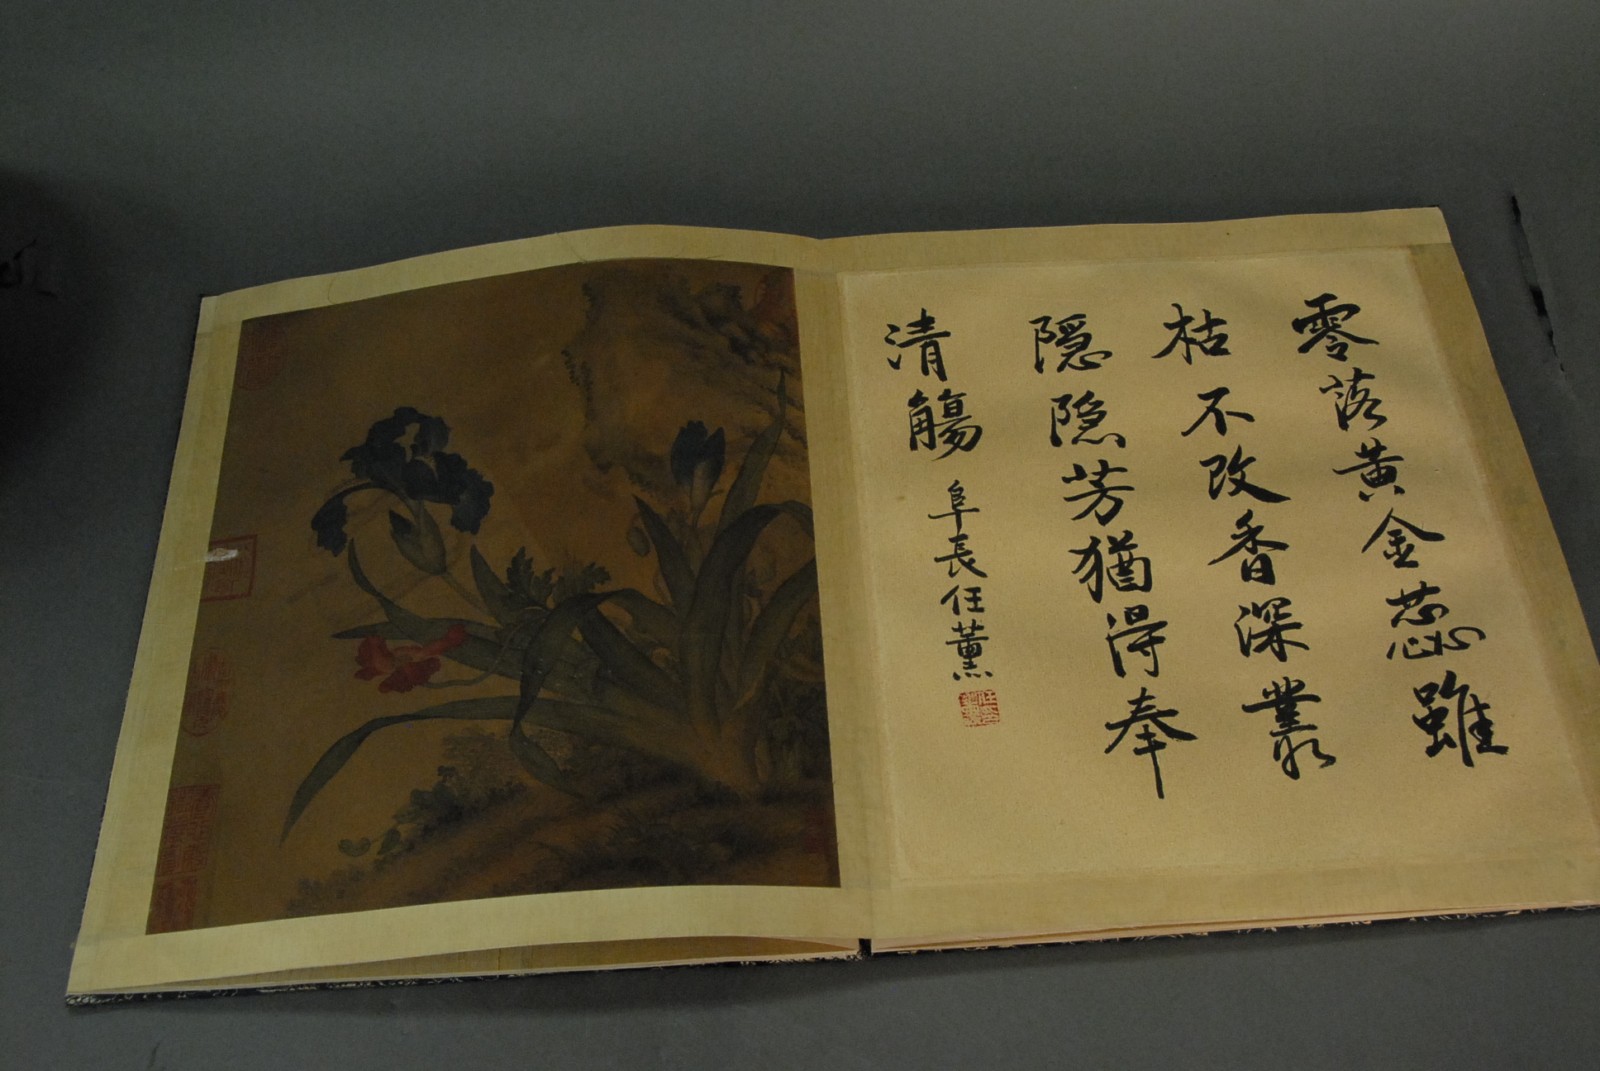 零落黄金蕊雖
枯不改香深叢
隱隱芳猶得奉
清觴
阜長任薰